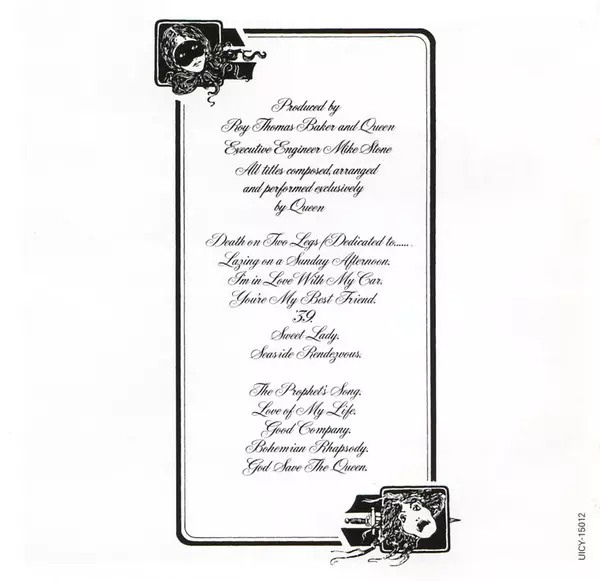 Produced by
Roy Thomas Baker and Queen
Executive Engineer Mike Stone
All titles composed, arranged
and performed exclusively
by Queen
Death on Two Legs (Dedicated to......
Lazing on a Sunday Afternoon.
I'm in Love With My Car.
You're My Best Friend.
'39.
Sweet Lady.
Seaside Rendezvous.
The Prophet's Song.
Love of My Life.
Good Company.
Bohemian Rhapsody.
God Save The Queen.
UICY-15012